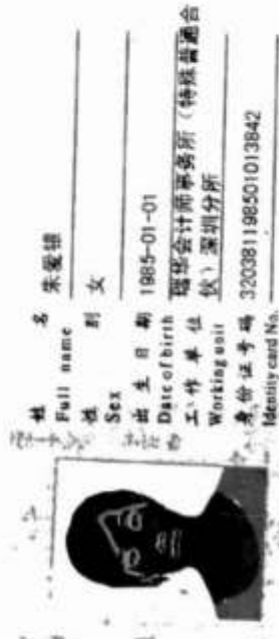 姓 名 朱爱银
Full name
性 别 女
Sex
出 生 日 期 1985-01-01
Date of birth
工 作 单 位 瑞华会计师事务所（特殊普通合
Working unit 伙）深圳分所
身份证号码 320381198501013842
Identity card No.